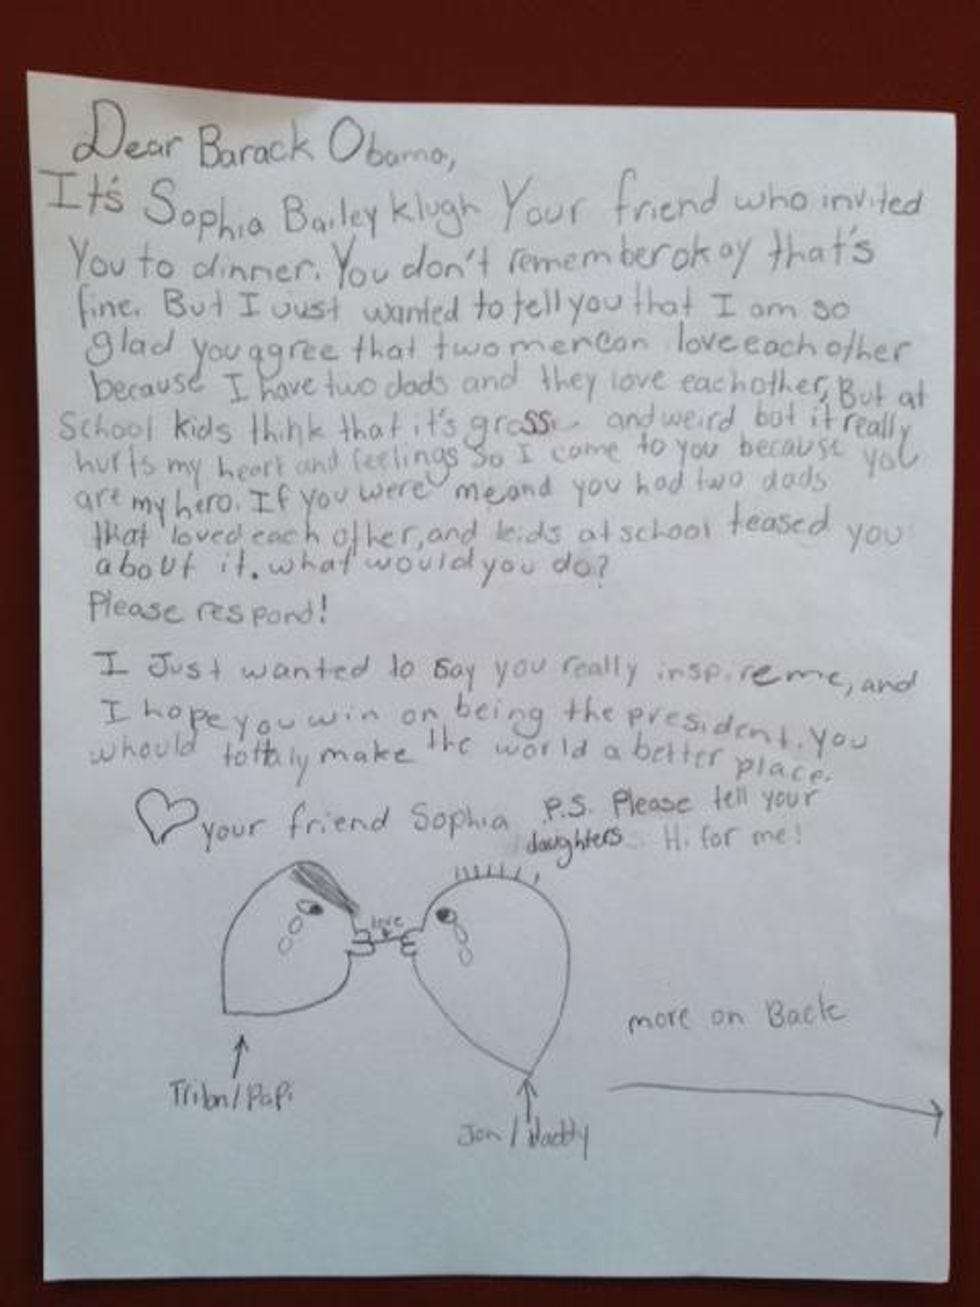 Dear Barack Obama,
It's Sophia Bailey Klugh Your friend who invited
You to dinner. You don't remember okay that's
fine. But I Just wanted to tell you that I am so
glad you agree that two men can love each other
because I have two dads and they love each other, But at
School kids think that it's gross and weird but it really
hurts my heart and feelings So I come to you because you
are my hero. If you were me and you had two dads
that loved each other, and kids at school teased you
about it. what would you do?
Please respond!
I Just wanted to say you really inspire me, and
I hope you win on being the president. You
whould tottaly make the world a better place.
your friend Sophia
P.S. Please tell your
daughters Hi for me!
love
more on Back
Triton/Papi
Jon / daddy